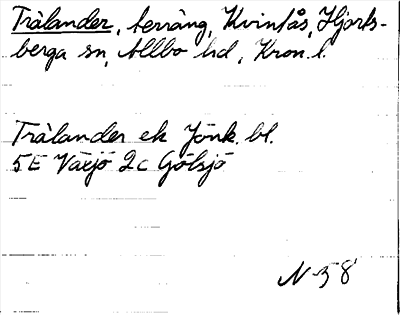 Trälander, terräng, Kvinfås, Hjorts-
berga sn, Allbo hd, Kron.l.
Trälander ek Jönk. bl.
5E Växjö 2c Gölsjö
N-58